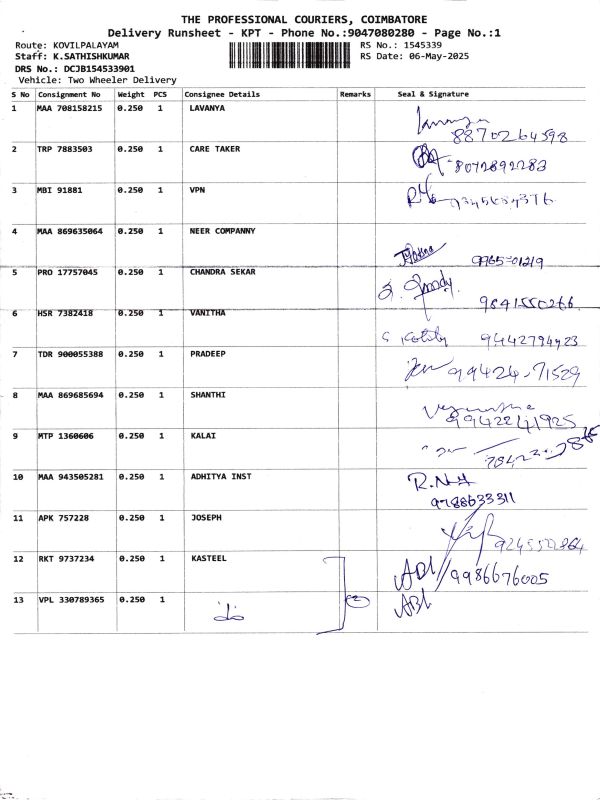 THE PROFESSIONAL COURIERS, COIMBATORE
Delivery Runsheet - KPT - Phone No.:9047080280 - Page No.:1
Route: KOVILPALAYAM
RS No.: 1545339
Staff: K.SATHISHKUMAR
RS Date: 06-May-2025
DRS No.: DCJB154533901
Vehicle: Two Wheeler Delivery
S No Consignment No Weight PCS Consignee Details Remarks Seal & Signature
1 MAA 708158215 0.250 1 LAVANYA
8870264598
2 TRP 7883503 0.250 1 CARE TAKER
8072892283
3 MBI 91881 0.250 1 VPN
4 MAA 869635064 0.250 1 NEER COMPANNY
5 PRO 17757045 0.250 1 CHANDRA SEKAR
9841550266
6 HSR 7382418 0.250 1 VANITHA
9442794923
7 TDR 900055388 0.250 1 PRADEEP
99424-71529
8 MAA 869685694 0.250 1 SHANTHI
9942241925
9 MTP 1360606 0.250 1 KALAI
10 MAA 943505281 0.250 1 ADHITYA INST R.N
9788633311
11 APK 757228 0.250 1 JOSEPH
12 RKT 9737234 0.250 1 KASTEEL ABI//9986676005
13 VPL 330789365 0.250 1 ABI